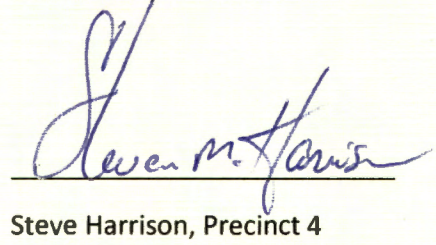 Steven M. Harrison
Steve Harrison, Precinct 4